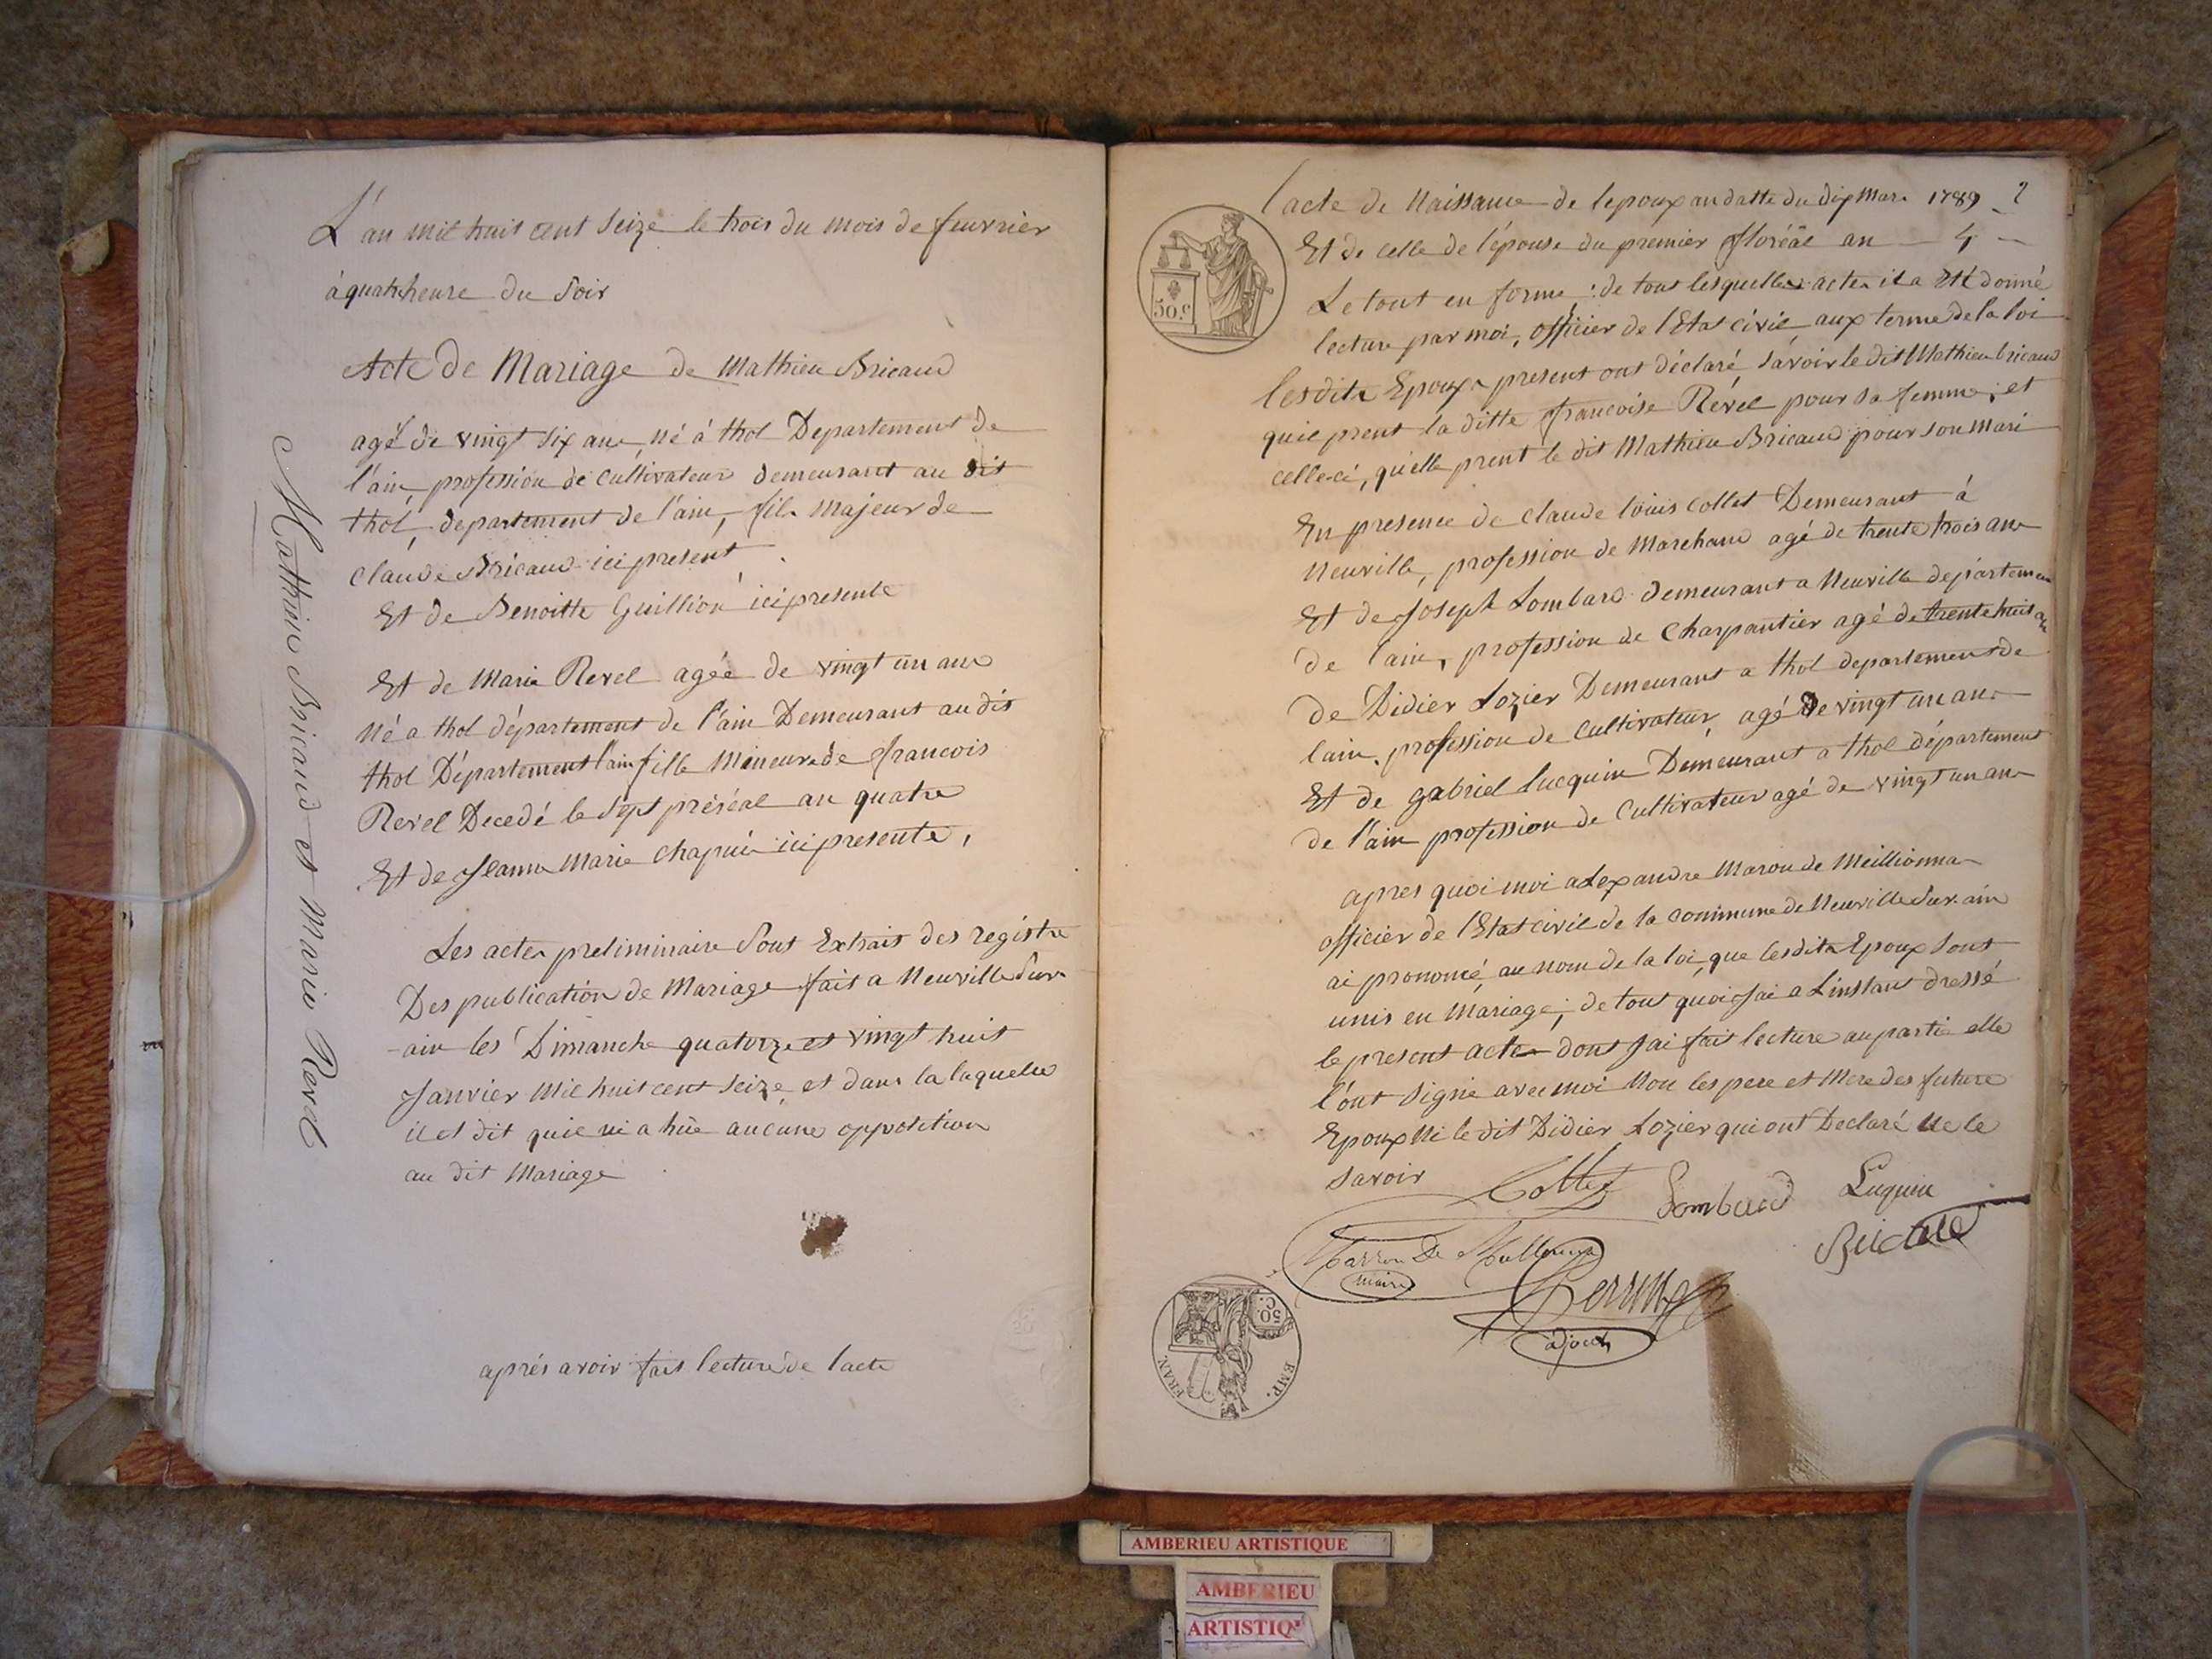 L'an mil huit cent seize le trois du mois de feuvrier
à quatrheure du soir
Acte de Mariage de Mathieu Bricaud
agé de vingt six ans, né à thol Departement de
l'ain profession de cultivateur demeurant au dit
thol, departement de l'ain, fils majeur de
Claude Bricaud ici present
Et de Benoitte Guillion ici presente
Et de Marie Revel agée de vingt un ans
né a thol département de l'ain Demeurant au dit
thol Département l'ain fille Mineure de francois
Revel Decedé le sept préréal an quatre
Et de Jeanne Marie Chapuis ici presente,
Les actes preliminaire sont Extrait des registre
Des publication de Mariage fait a Neuville sur
ain les Dimanche quatorze et vingt huit
Janvier mil huit cent seize, et dans la laquelle
il et dit quil ni a hue aucune opposition
au dit Mariage
après avoir fait lecture de l'acte
Mathieu Bricaud et Marie Revel
l'acte de Naissance de lepoux an datte du dix Mars 1789
Et de celle de l'épouse du premier floréal an 4
Le tout en forme : de tous lesquelles actes il a été donné
lecture par moi, officier de l'Etat civil, aux terme de la loi
lesdits Epoux present ont déclaré, savoir le dit Mathieu bricaud
quil prent la ditte francoise Revel pour sa femme ; et
celle-ci, qu'elle prent le dit Mathieu Bricaud pour son mari
En presence de Claude louis Collet Demeurant à
Neuville, profession de Marchand agé de trente trois ans
Et de Joseph Lombard demeurant a Neuville département
de l'ain, profession de Charpantier agé de trente huit ans
de Didier Lozier Demeurant a thol departement de
l'ain, profession de Cultivateur, agé de vingt un ans
Et de gabriel Lucquin Demeurant a thol département
de l'ain profession de Cultivateur agé de vingt un ans
apres quoi moi alexandre Maron de Meillionna
officier de l'Etat civil de la commune de Neuville sur ain
ai prononcé, au nom de la loi, que lesdits Epoux sont
unis en Mariage ; de tout quoi Jai a Linstant dressé
le present acte dont Jai fait lecture au partie elle
l'ont signé avec moi Non les pere et Mere des future
Epoux Ni le dit Didier Lozier qui ont Declaré ne le
savoir
Collet
Lombard
Luquin
Marron De
maire
Bricaud
adjoint
50.C
50. C.
EMP. FRAN.
AMBERIEU ARTISTIQUE
AMBERIEU
ARTISTIQU